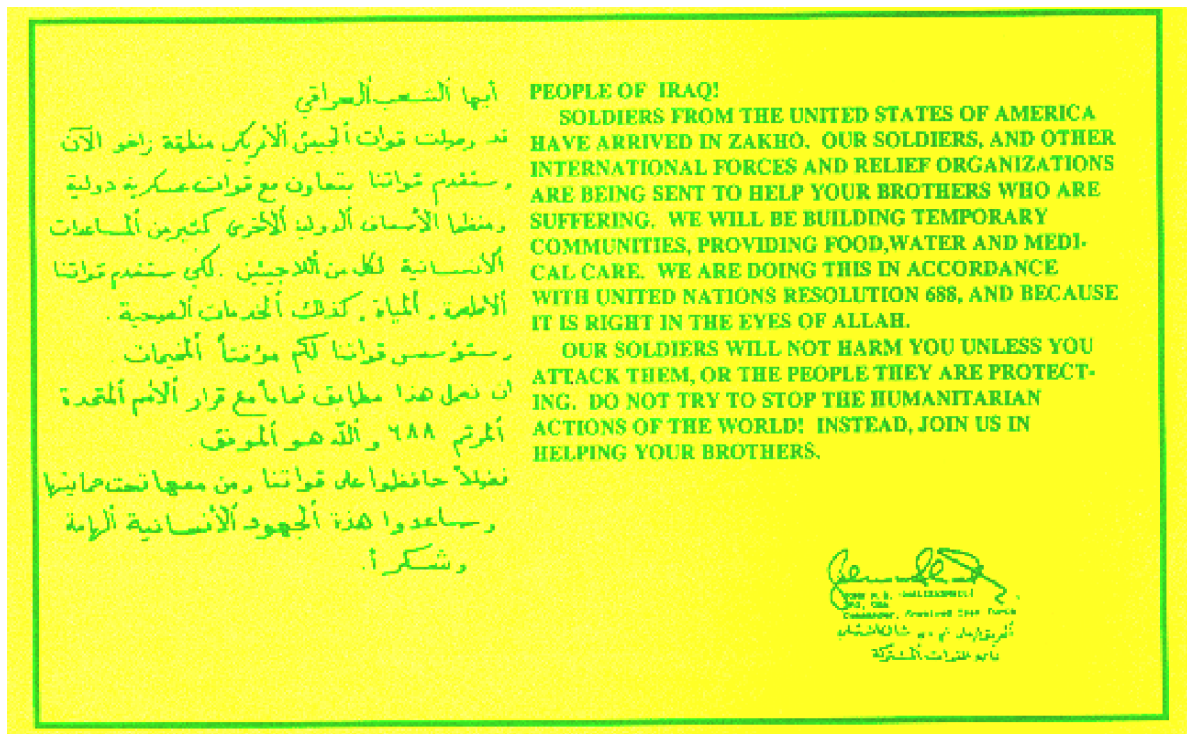 أيها ألشعب ألعراقي
قد وصلت قوات ألجيش ألأمريكي منطقة زاخو الآن
وستقدم قواتنا بتعاون مع قوات عسكرية دولية
ومنظما الأسعاف ألدوليا ألأخرى كثيرمن ألمساعدات
ألأنسانية لكل من أللاجئين . لكي ستقدم قواتنا
ألأطعمة , ألمياة , كذلك ألخدمات ألصحية .
وستؤسس قواتنا لكم مؤقتاً ألمخيمات
ان نعمل هذا مطابق تماماً مع قرار ألأمم ألمتحدة
ألمرقم ٦٨٨ و أللّه هو ألموفق .
فضلاً حافظوا على قواتنا ومن معها تحت حمايتها
وساعدوا هذة ألجهود ألأنسانية ألهامة
وشكراً .
PEOPLE OF IRAQ!
SOLDIERS FROM THE UNITED STATES OF AMERICA
HAVE ARRIVED IN ZAKHO. OUR SOLDIERS, AND OTHER
INTERNATIONAL FORCES AND RELIEF ORGANIZATIONS
ARE BEING SENT TO HELP YOUR BROTHERS WHO ARE
SUFFERING. WE WILL BE BUILDING TEMPORARY
COMMUNITIES, PROVIDING FOOD,WATER AND MEDI-
CAL CARE. WE ARE DOING THIS IN ACCORDANCE
WITH UNITED NATIONS RESOLUTION 688, AND BECAUSE
IT IS RIGHT IN THE EYES OF ALLAH.
OUR SOLDIERS WILL NOT HARM YOU UNLESS YOU
ATTACK THEM, OR THE PEOPLE THEY ARE PROTECT-
ING. DO NOT TRY TO STOP THE HUMANITARIAN
ACTIONS OF THE WORLD! INSTEAD, JOIN US IN
HELPING YOUR BROTHERS.
JOHN M.
USA
Commander, Combined Task Force